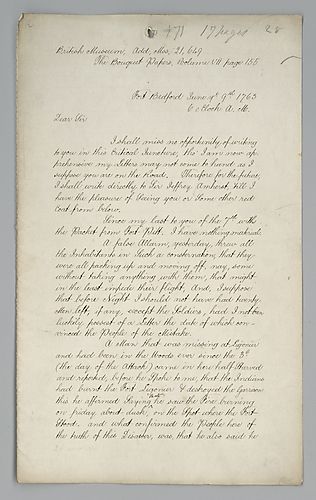 17 pages
British Museum, Add, Mss, 21,649
The Bouquet Papers, Volume VII page 155
Fort Bedford June ye 9th 1763
6 o Clock A. M.
Dear Sir
I shall miss no opportunity of writing
to you in this Critical Juncture, tho' I am now ap-
prehensive my Letters may not come to hand as I
suppose you are on the Road. Therefore for the future,
I shall write directly to Sir Jeffrey Amherst, till I
have the pleasure of seeing you or some other red
Coat from below.
Since my last to you of the 7th with
the Packet from Fort Pitt, I have nothing material.
A false Allarm, yesterday, threw all
the Inhabitants in such a consternation, that they
were all packing up and moving off, nay, some
without taking anything with them, that might
in the least impede their flight, And, I suppose
that before Night I should not have had twenty
Men left, if any, except the Soldiers, had I not been
luckily possest of a Letter the date of which con-
vinced the People of the Mistake.
A Man that was missing at Ligonier
and had been in the Woods ever since the 3d
(the day of the Attack) came in here half Starved
and reported, before he Spoke to me, that the Indians
had burnt the Fort Ligonier & destroyed the Garrison
this he affirmed Saying that he saw the Fire burning
on friday about dusk, on the Spot where the Fort
Stood, and what confirmed the People here of
the truth of this Disaster, was, that he also said he